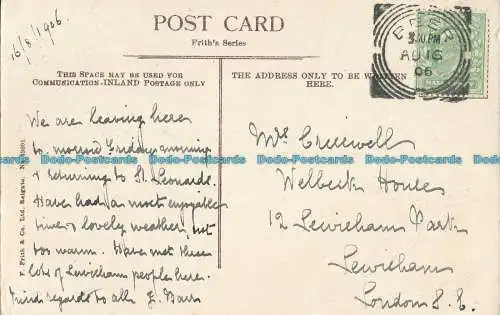 16/8/1906.
POST CARD
Frith's Series
THIS SPACE MAY BE USED FOR
COMMUNICATION-INLAND POSTAGE ONLY
THE ADDRESS ONLY TO BE WRITTEN
HERE.
3.30 PM
AU 16
06
We are leaving here
to morrow Friday morning
& returning to St. Leonards.
Have had a most enjoyable
time & lovely weather, not
too warm. Have met three
lots of Lewisham people here.
Kind regards to all
Mrs Cresswell
Welbeck House
12 Lewisham Park
Lewisham
London S.E.
F. Frith & Co., Ltd., Reigate.
Dodo-Postcards Dodo-Postcards Dodo-Postcards Dodo-Postcards
Dodo-Postcards Dodo-Postcards Dodo-Postcards Dodo-Postcards